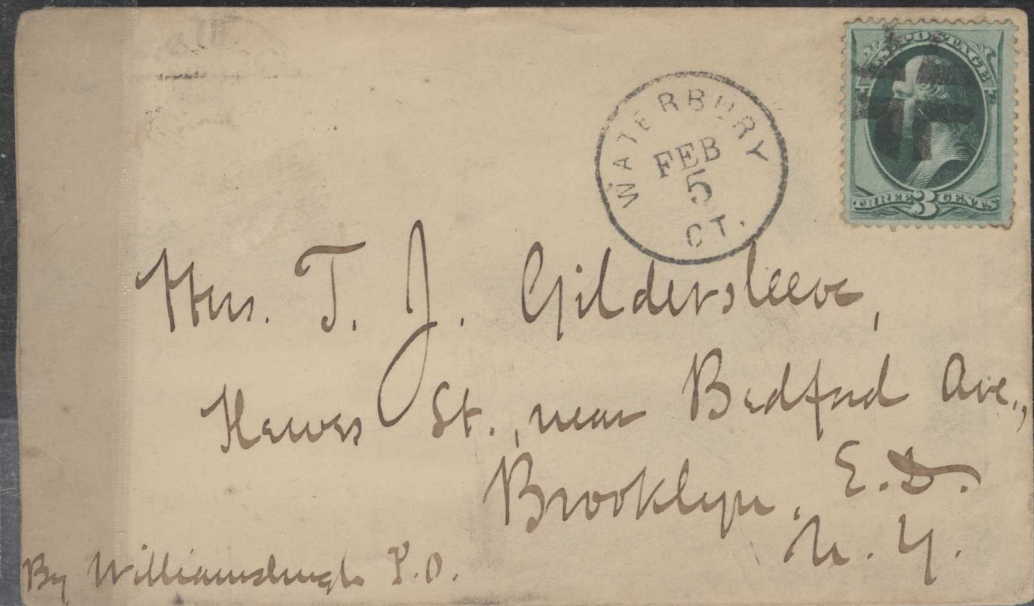 U.S. POSTAGE
THREE 3 CENTS
WATERBURY
FEB
5
CT.
Mrs. T. J. Gildersleeve,
Hewes St., near Bedford Ave.,
Brooklyn, E.D.
N.Y.
By Williamsburgh P.O.